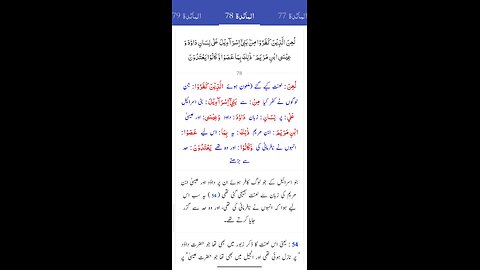 المَائدة 79 المَائدة 78 المَائدة 77
لُعِنَ الَّذِيْنَ كَفَرُوْا مِنْۢ بَنِيْٓ اِسْرَآءِيْلَ عَلٰي لِسَانِ دَاوٗدَ وَ
عِيْسَى ابْنِ مَرْيَمَ ۭذٰلِكَ بِمَا عَصَوْا وَّكَانُوْا يَعْتَدُوْنَ
78
لُعِنَ : لعنت کیے گئے (ملعون ہوئے الَّذِيْنَ كَفَرُوْا : جن
لوگوں نے کفر کیا مِنْ : سے بَنِيْٓ اِسْرَآءِيْلَ : بنی اسرائیل
عَلٰي : پر لِسَانِ : زبان دَاوٗدَ : داود وَعِيْسَى : اور عیسیٰ
ابْنِ مَرْيَمَ : ابن مریم ذٰلِكَ : یہ بِمَا : اس لیے عَصَوْا :
انہوں نے نافرمانی کی وَّكَانُوْا : اور وہ تھے يَعْتَدُوْنَ : حد
سے بڑھتے
بنو اسرائیل کے جو لوگ کافر ہوئے ان پر داؤد اور عیسیٰ ابن
مریم کی زبان سے لعنت بھیجی گئی تھی (54) یہ سب اس
لیے ہوا کہ انہوں نے نافرمانی کی تھی، اور وہ حد سے گزر
جایا کرتے تھے۔
54 : یعنی اس لعنت کا ذکر زبور میں بھی تھا جو حضرت داؤد
پر نازل ہوئی تھی اور انجیل میں بھی تھا جو حضرت عیسیٰ پر